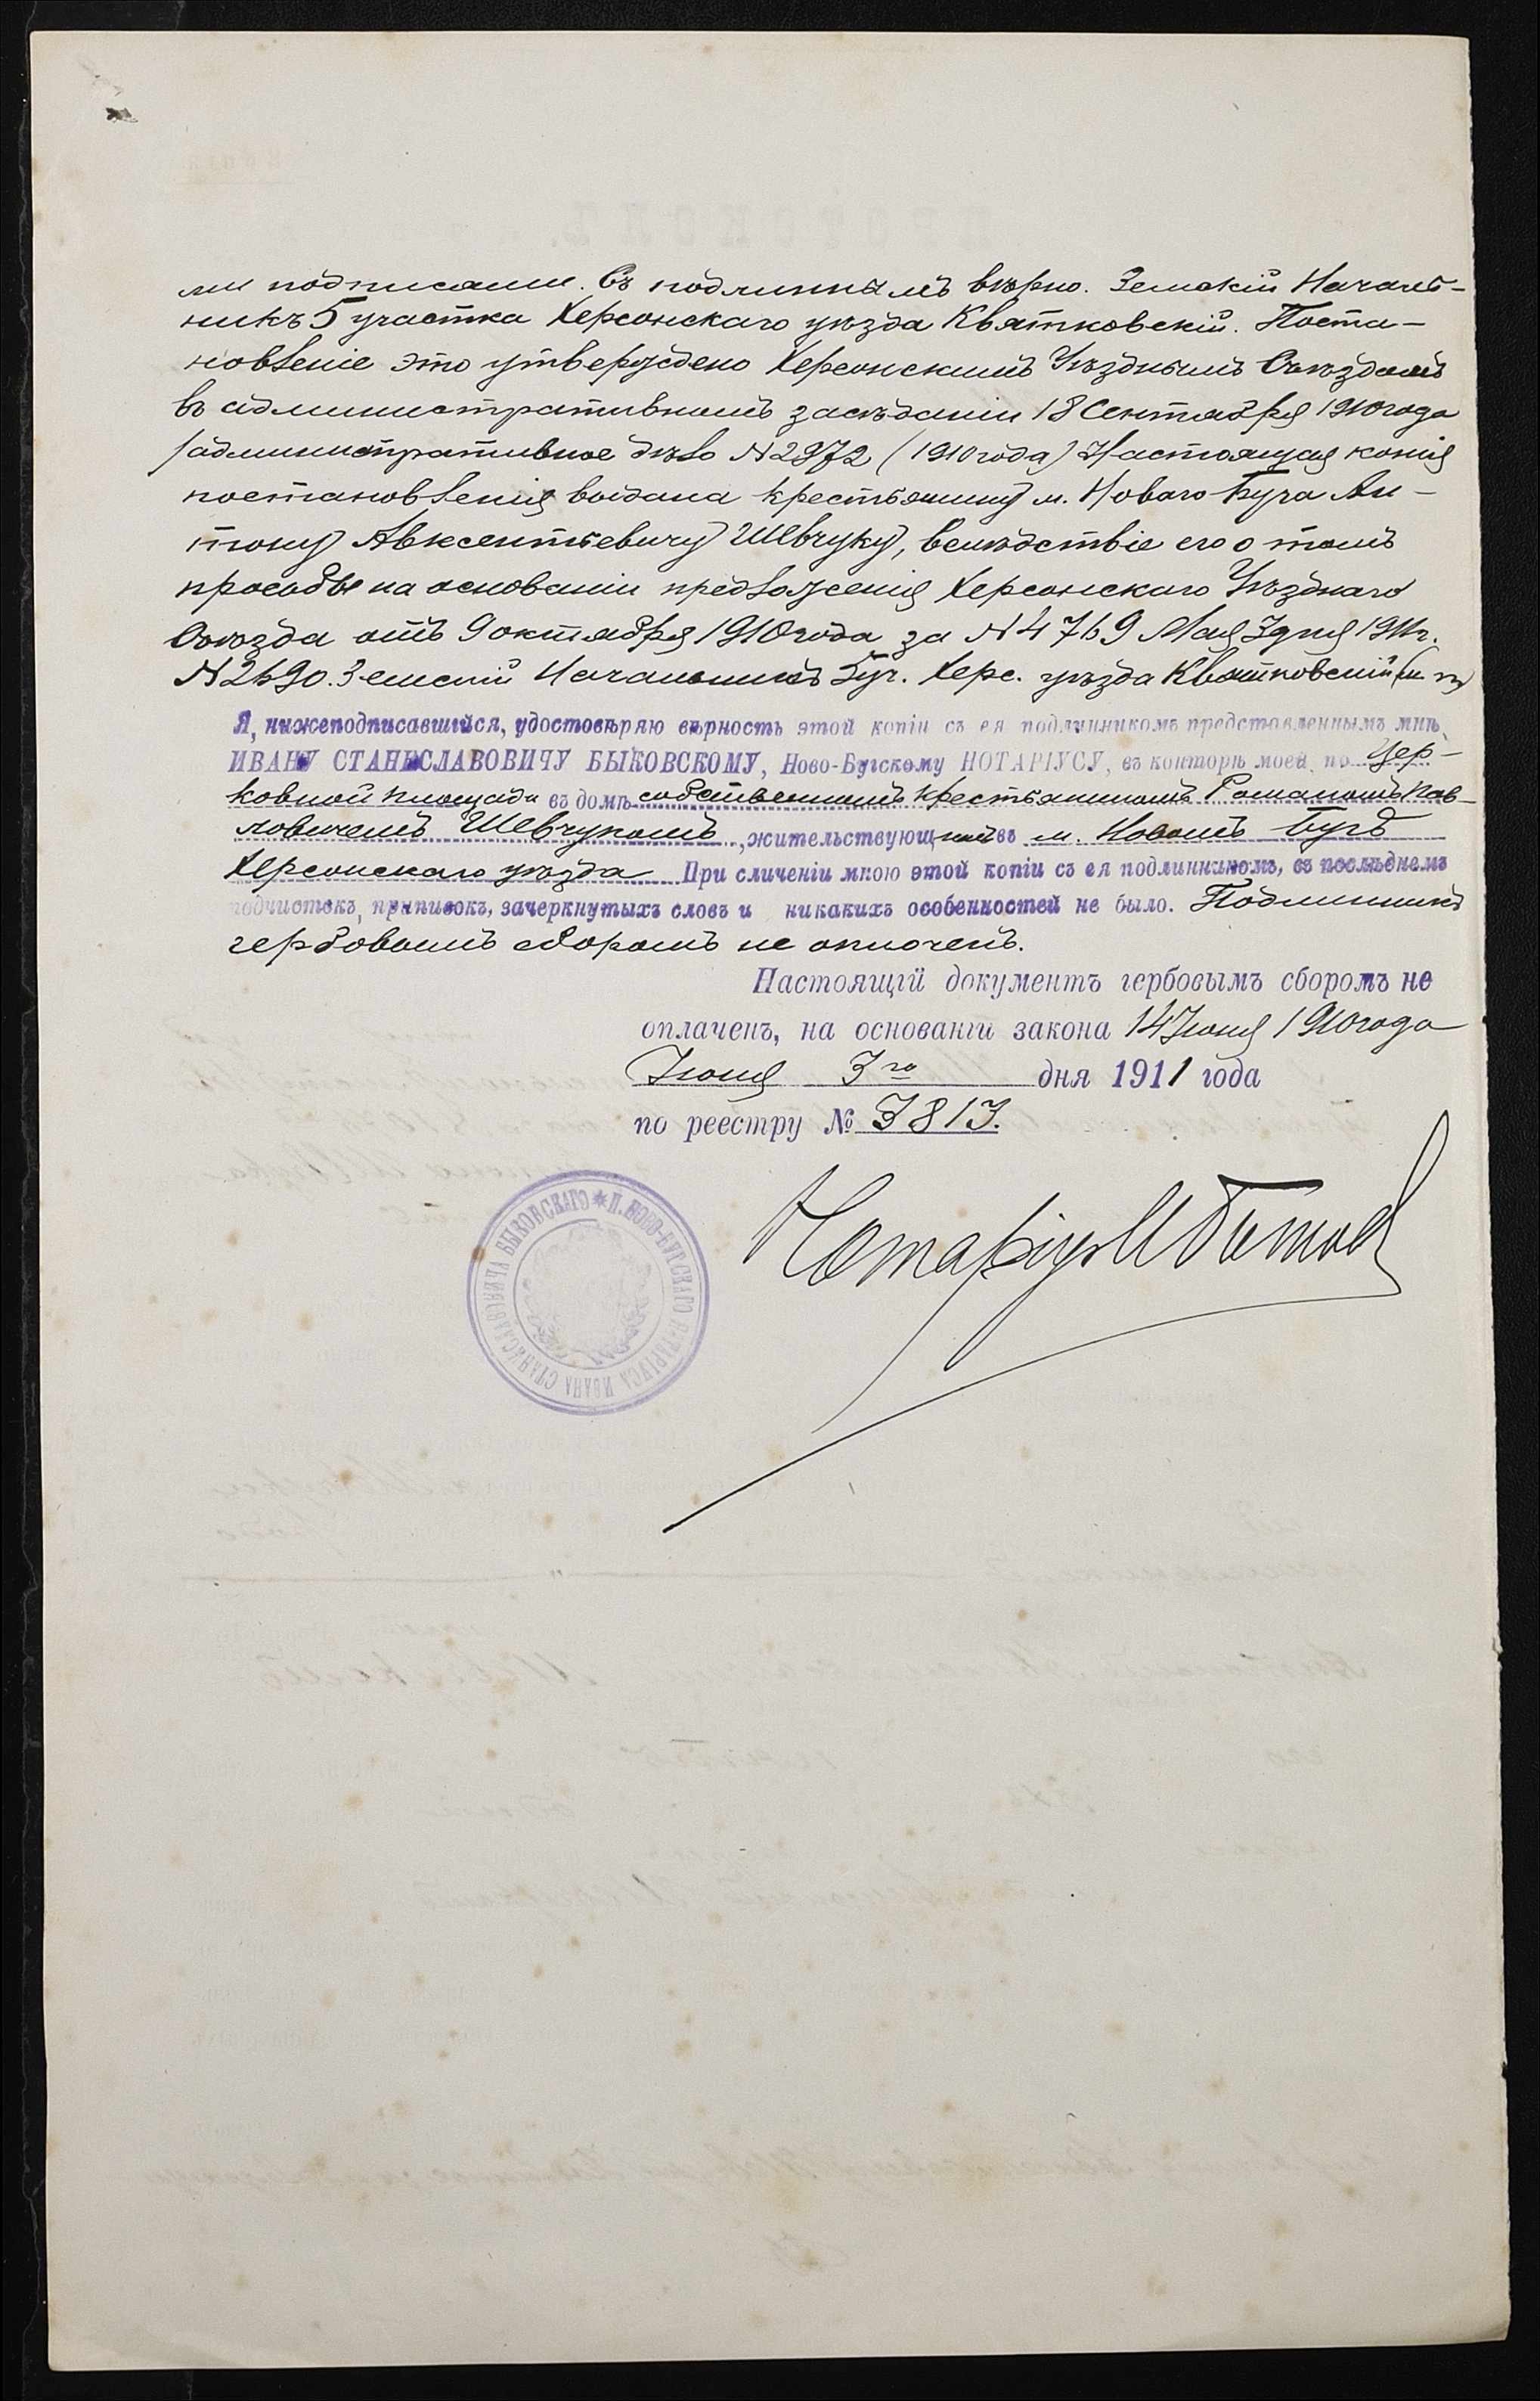 ми подписями. Съ подлиннымъ вѣрно. Земскій Началь-
никъ 5 участка Херсонскаго уѣзда Квятковскій. Поста-
новленіе это утверждено Херсонскимъ Уѣзднымъ Съѣздомъ
въ административномъ засѣданіи 18 Сентября 1910 года
/административное дѣло №2972 (1910 года) Настоящая копія
постановленія выдана крестьянину м. Новаго-Буга Ан-
тону Авксентьевичу Шевчуку, вслѣдствіе его о томъ
просьбы на основаніи предложенія Херсонскаго Уѣзднаго
Съѣзда отъ 9 октября 1910 года за №4769 Мая 3 дня 1911 г.
№2690. Земскій Начальникъ 5 уч. Херс. уѣзда Квятковскій (м. п)
Я, нижеподписавшійся, удостовѣряю вѣрность этой копіи съ ея подлинникомъ представленнымъ мнѣ,
ИВАНУ СТАНИСЛАВОВИЧУ БЫКОВСКОМУ, Ново-Бугскому НОТАРІУСУ, въ конторѣ моей, по Цер-
ковной площади въ домѣ собственномъ крестьяниномъ Романомъ Пав-
ловичемъ Шевчукомъ, жительствующимъ въ м. Новомъ Бугѣ
Херсонскаго уѣзда При сличеніи мною этой копіи съ ея подлинникомъ, въ послѣднемъ
подчистокъ, приписокъ, зачеркнутыхъ словъ и никакихъ особенностей не было. Подлинникъ
гербовымъ сборомъ не оплоченъ.
Настоящій документъ гербовымъ сборомъ не
оплаченъ, на основаніи закона 14 Іюня 1910 года
Іюня 3го дня 1911 года
по реестру № 3813.
Нотаріусъ И
П. НОВО-БУГСКАГО НОТАРІУСА ИВАНА СТАНИСЛАВОВИЧА БЫКОВСКАГО *